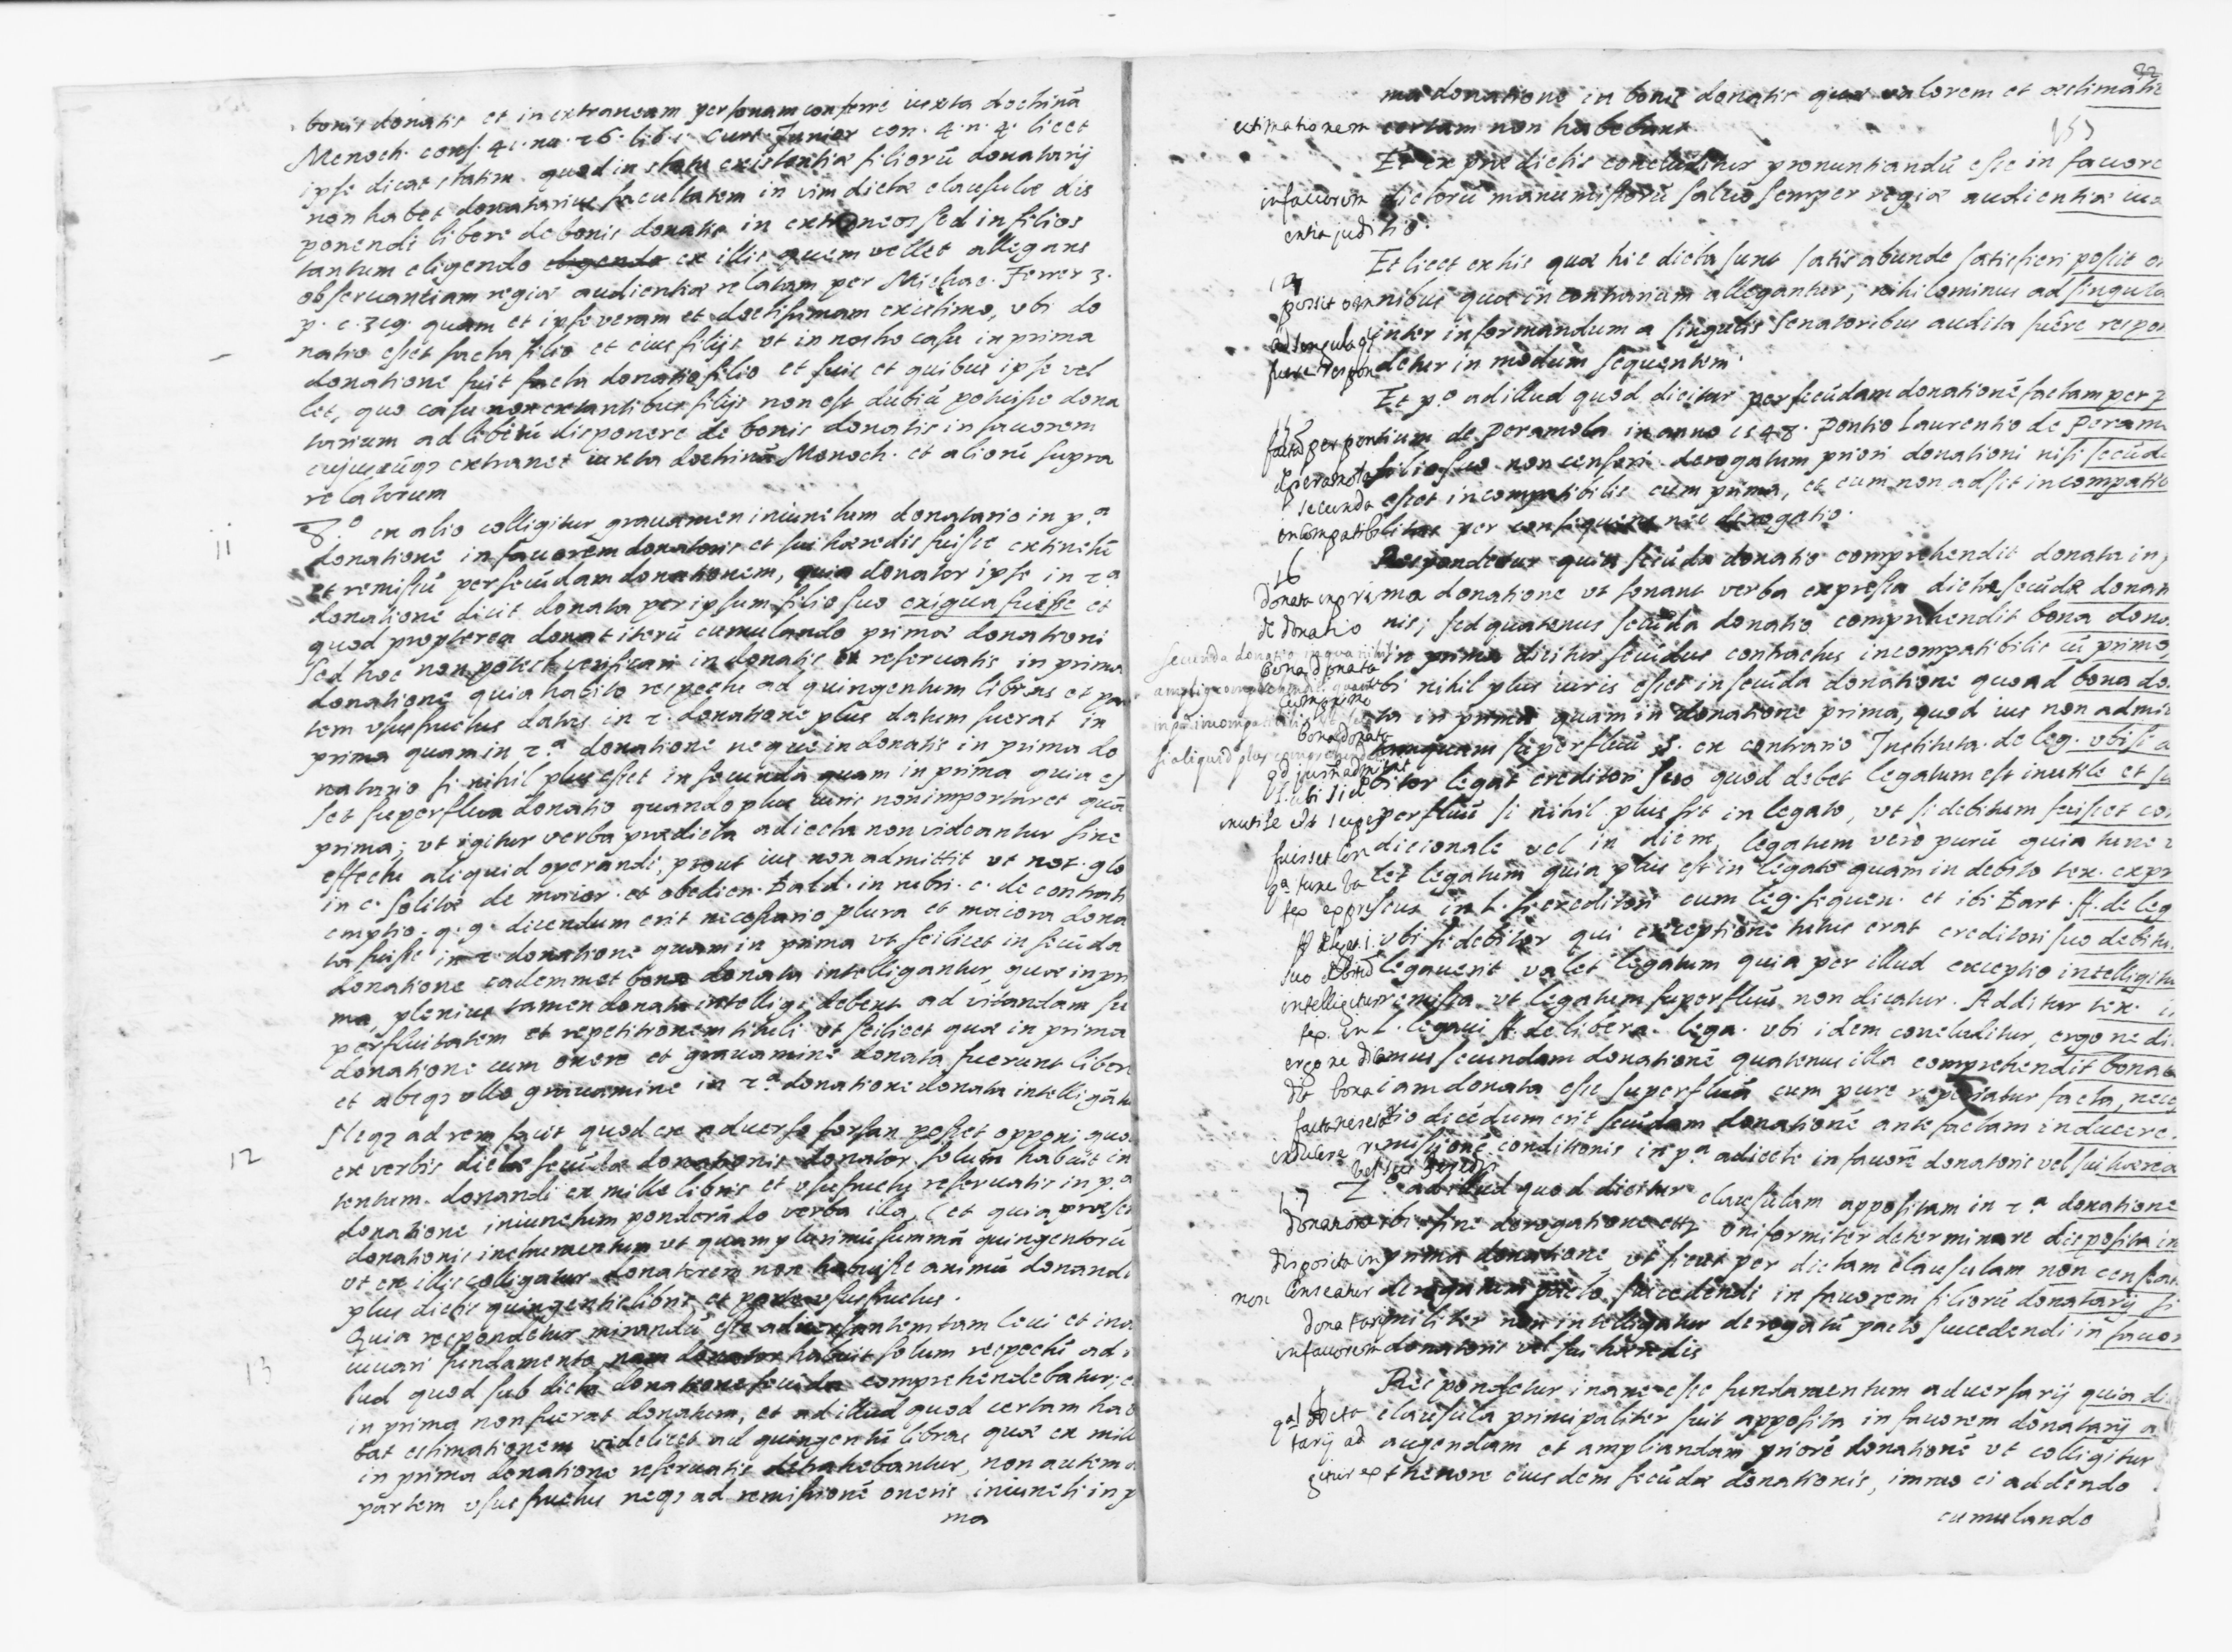 bonis donatis et in extraneam personam conferre iuxta doctrinā
Menoch. cons. 41. nu. 26. lib. 1. Curt. Junior con. 4. n. 4. licet
ipse dicat statim quod in statu existentiæ filiorū donatarij
non habet donatarius facultatem in vim dictæ clausulæ dis
ponendi libere de bonis donatis in extraneos sed in filios
tantum eligendo ex illis quem vellet allegans
observantiam regiæ audientiæ relatam per Michae. Ferrer 3.
p. c. 319. quam et ipse veram et doctissimam existimo, ubi do
natio esset facta filio et eius filijs ut in nostro casu in prima
donatione fuit facta donatio filio et suis et quibus ipse vel
let, quo casu non extantibus filijs non est dubiū potuisse dona
tarium ad libitū disponere de bonis donatis in favorem
cujuscūqꝫ extranei iuxta doctrinā Menoch. et aliorū supra
relatorum
ii
8.º ex alio colligitur gravamen iniunctum donatario in p.ª
donatione in favorem donatoris et sui hæredis fuisse extinctū
et remissū per secūdam donationem, quia donator ipse in 2ª
donatione dicit donata per ipsum filio suo exigua fuisse et
quod propterea donat iterū cumulando primæ donationi
Sed hoc non potest verificari in donatis et reservatis in prima
donatione quia habito respectu ad quingentum libras et par
tem ususfructus datas in 2. donatione plus datum fuerat in
prima quam in 2.ª donatione neque in donatis in prima do
natario si nihil plus esset in secunda quam in prima quia es
set superflua donatio quando plus iuris non importaret quā
prima; ut igitur verba prædicta adiecta non videantur sine
effectu aliquid operandi prout ius non admittit ut not. glo
in c. solitæ de maior. et obedien. Bald. in rubri. c. de contrah
emptio. q. 9. dicendum erit necessario plura et maiora dona
tā fuisse in 2. donatione quam in prima ut scilicet in secūda
donatione eademmet bona donata intelligantur quæ in pri
ma, plenius tamen donata intelligi debent ad vitandam su
perfluitatem et repetitionem tituli ut scilicet quæ in prima
donatione cum onere et gravamine donata fuerunt libere
et absqꝫ ullo gravamine in 2ª donatione donata intelligātu
12
Neqꝫ ad rem facit quod ex adverso forsan posset opponi quod
ex verbis dictæ secūdæ donationis donator solum habuit in
tentum donandi ex mille libris et usufructu reservatis in p.ª
donatione iniunctum ponderādo verba illa, (et quia præsen
donationis inctrumentum ut quamplurimū summā quingentorū
ut ex illis colligatur donatorem non habuisse animū donandi
plus dictis quingentis libris et parte ususfructus.
13
Quia respondetur mirandū esse adversantem tam levi et ina
iuvari fundamento nam donator habuit solum respectū ad i
lud quod sub dicta donatione secūda comprehendebatur, e
in prima non fuerat donatum, et ad illud quod certam ha
bat estimationem videlicet ad quingentū libras quæ ex mille
in prima donatione reservatis detrahebantur, non autem a
partem ususfructus neqꝫ ad remissionē oneris iniuncti in p
ma
ma donatione in bonis donatis quæ valorem et æstimatio
estimationem certam non habebant.
Et ex prædictis concluditur pronuntiandū esse in favore
in favorem dictorū manumissorū salvo semper regiæ audientiæ iud
entiæ juditio.
Et licet ex his quæ hic dicta sunt satis abunde satisfieri possit o
possit omnibus quæ in contrarium allegantur, nihilominus ad singula
ad singula qꝫ inter informandum a singulis Senatoribus audita fuêre respon
fuere respondetur in modum sequentem.
Et p.º ad illud quod dicitur per secūdam donationē factam per p
factā per pontium de Peramola in anno 1548. Pontio Laurentio de Peram
de peramola filio suo non censeri derogatum priori donationi nisi secūda
secunda esset incompatibilis cum prima, et cum non adsit incompatib
incompatibilitas per consequens nec derogatio.
16
Respondetur quia secūda donatio comprehendit donata in p
Donata in prima donatione ut sonant verba expressa dictæ secūdæ donat
de donatio nis; sed quatenus secūda donatio comprehendit bona dona
bona donata in prima dicitur secūdus contractus incompatibilis cū primo,
cum primo ubi nihil plus iuris esset in secūda donatione quoad bona do
bona donata ta in prima quam in donatione prima, quod ius non admit
qd jus nō admittat tamquam superfluū §. ex contrario Institutæ de leg. ubi si d
ubi si debitor legat creditori suo quod debet legatum est inutile et su
inutile est superfluū si nihil plus sit in legato, ut si debitum fuisset con
fuisset condicionale vel in diem, legatum vero purū quia tunc v
qª tunc valet legatum quia plus est in legato quam in debito tex. expr
tex expressus in l. si creditori cum leg. sequen. et ibi Bart. ff. de leg
ff de leg. 1. ubi si debitor qui exceptione tutus erat creditori suo debitu
suo debitū legaverit valet legatum quia per illud exceptio intelligitu
intelligitur remissa ut legatum superfluū non dicatur. Additur tex. i
tex. in l. legavi ff. de libera. lega. ubi idem concluditur, ergo ne di
ergo ne dicamus secundam donationē quatenus illa comprehendit bona
dit bona iam donata esse superfluā cum pure reperiatur facta, nece
facta necessario dicēdum erit secūdam donationē ante factam inducere
inducere remissionē conditionis in p.ª adiectæ in favorē donatoris vel sui hæred
vel sui heredis
17
2.º ad illud quod dicitur clausulam appositam in 2ª donatione
donatione ibi sine derogatione ettꝫ uniformiter determinare disposita in
disposita in prima donatione, ut sicut per dictam clausulam non censeat
non censeatur derogatum pacto succedendi in favorem filiorū donatarij si
donatarij similiter non intelligatur derogatū pacto succedendi in favor
in favorem donatoris vel sui hæredis
Respondetur inane esse fundamentum adversarij quia di
qª dicta clausula principaliter fuit apposita in favorem donatarij a
tarij ad augendam et ampliandam priorē donationē ut colligitur
gitur ex thenore eiusdem secūdæ donationis, immo ei addendo
cumulando